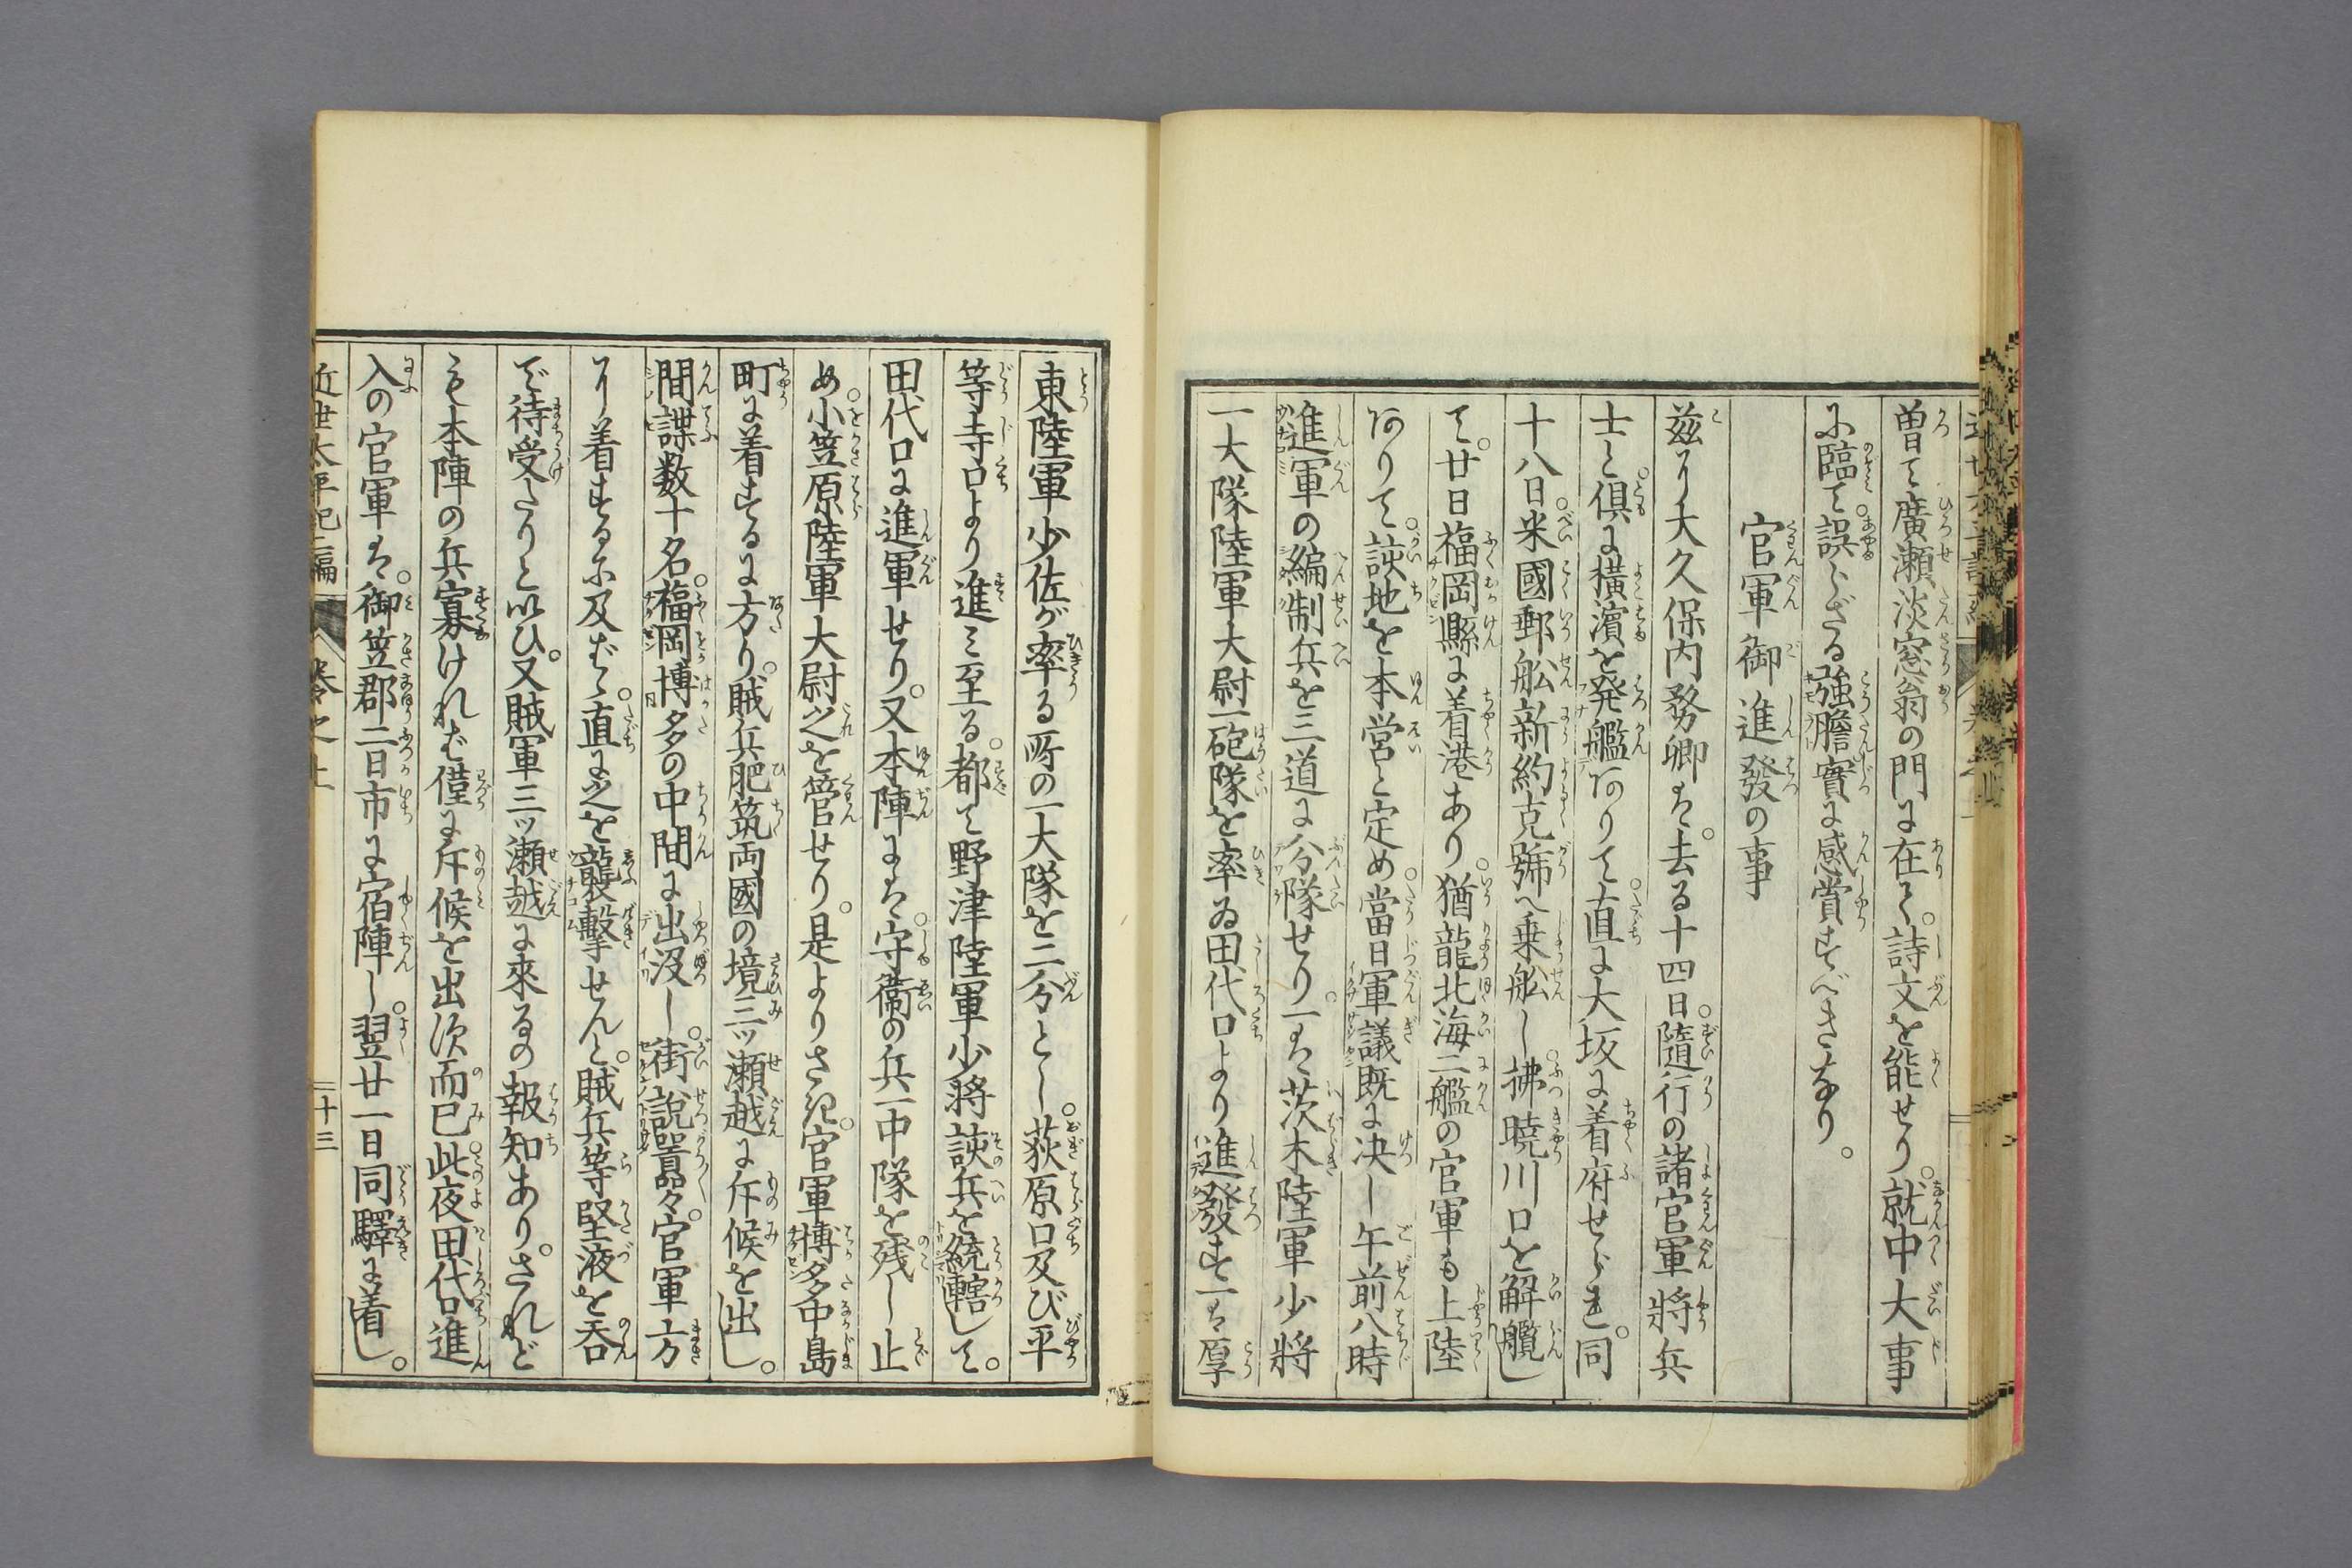 曽て廣瀬淡窓翁の門に在て。詩文を能せり。就中大事
に臨て。誤らざる強膽實に感賞すべきなり。
官軍御進發の事
茲に大久保内務卿は。去る十四日。隨行の諸官軍將兵
士と。倶に横濱を発艦ありて。直に大坂に着府せられ。同
十八日。米國郵舩新約克號へ乗舩し。拂暁川口を解纜し
て。廿日福岡縣に着港あり。猶龍北海二艦の官軍も上陸
ありて。該地を本営と定め。當日軍議既に决し午前八時
進軍の編制兵を三道に分隊せり。一は茨木陸軍少將
一大隊陸軍大尉一砲隊を率ゐ田代口より進發す一は厚
東陸軍少佐が率る所の一大隊を二分とし。荻原口及び平
等寺口より進み至る。都て野津陸軍少將該兵を統轄して。
田代口に進軍せり。又本陣には。守衞の兵一中隊を残し止
め。小笠原陸軍大尉之を管せり。是よりさき。官軍博多中島
町に着するに方り。賊兵肥筑両國の境三ッ瀬越に斥候を出し。
間諜数十名。福岡博多の中間に出沒し。街説囂々。官軍方
り着するに及ばゝ。直に之を襲擊せんと。賊兵等堅液を呑
で待受たりと以ひ。又賊軍三ッ瀬越に來るの報知あり。されど
も本陣の兵寡ければ僅に斥候を出次而已。此夜田代口進
入の官軍は。御笠郡二日市に宿陣し。翌廿一日同驛に着し。
近世太平記二編 巻之上 二十三